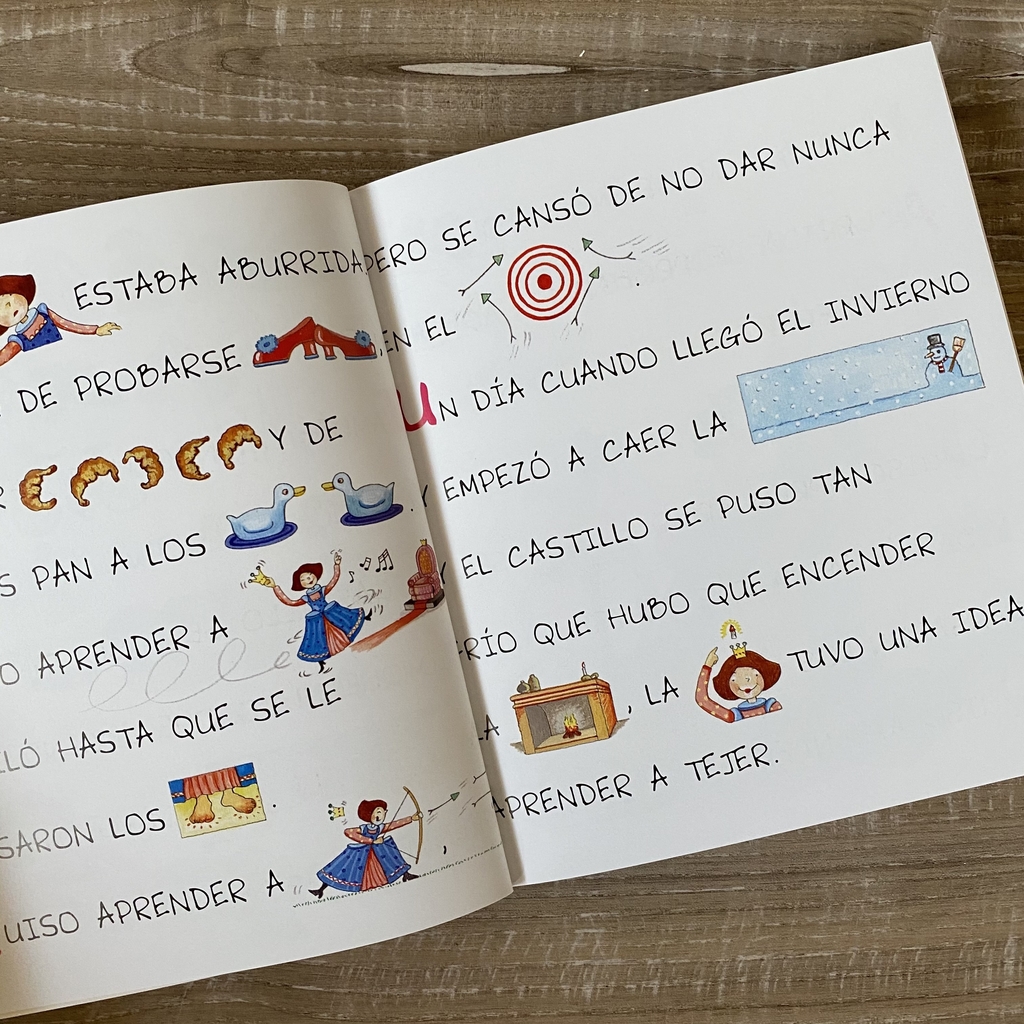 ESTABA ABURRIDA
DE PROBARSE
Y DE
PAN A LOS
APRENDER A
HASTA QUE SE LE
LOS .
APRENDER A ,
PERO SE CANSÓ DE NO DAR NUNCA
EN EL .
UN DÍA CUANDO LLEGÓ EL INVIERNO
EMPEZÓ A CAER LA
Y EL CASTILLO SE PUSO TAN
FRÍO QUE HUBO QUE ENCENDER
LA , LA TUVO UNA IDEA
APRENDER A TEJER.